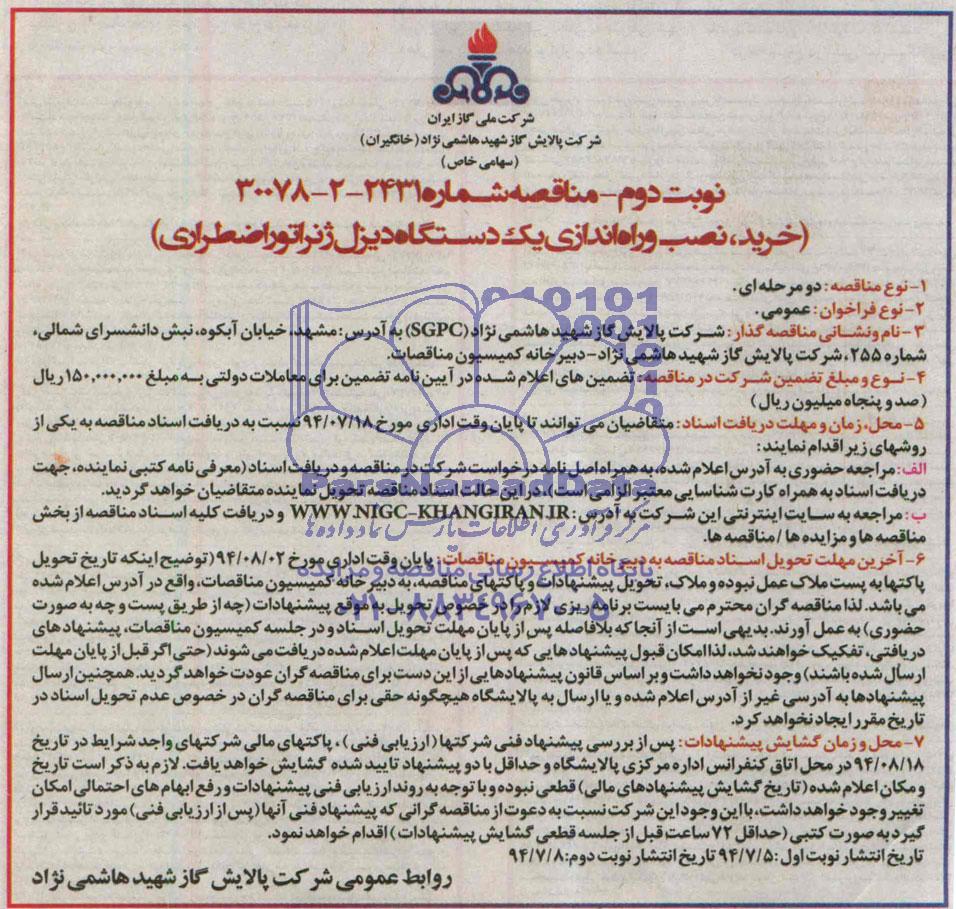 شرکت ملی گاز ایران
شرکت پالایش گاز شهید هاشمی نژاد (خانگیران)
(سهامی خاص)
نوبت دوم - مناقصه شماره ۲۴۳۱-۲-۳۰۰۷۸
(خرید، نصب و راه اندازی یک دستگاه دیزل ژنراتور اضطراری)
۱- نوع مناقصه: دو مرحله ای.
۲- نوع فراخوان: عمومی.
۳- نام و نشانی مناقصه گذار: شرکت پالایش گاز شهید هاشمی نژاد (SGPC) به آدرس: مشهد، خیابان آبکوه، نبش دانشسرای شمالی،
شماره ۲۵۵، شرکت پالایش گاز شهید هاشمی نژاد- دبیرخانه کمیسیون مناقصات.
۴- نوع و مبلغ تضمین شرکت در مناقصه: تضمین های اعلام شده در آیین نامه تضمین برای معاملات دولتی به مبلغ ۱۵۰,۰۰۰,۰۰۰ ریال
(صد و پنجاه میلیون ریال)
۵- محل، زمان و مهلت دریافت اسناد: متقاضیان می توانند تا پایان وقت اداری مورخ ۹۴/۰۷/۱۸ نسبت به دریافت اسناد مناقصه به یکی از
روشهای زیر اقدام نمایند:
الف: مراجعه حضوری به آدرس اعلام شده، به همراه اصل نامه درخواست شرکت در مناقصه و دریافت اسناد (معرفی نامه کتبی نماینده، جهت
دریافت اسناد به همراه کارت شناسایی معتبر الزامی است)، در این حالت اسناد مناقصه تحویل نماینده متقاضیان خواهد گردید.
ب: مراجعه به سایت اینترنتی این شرکت به آدرس: WWW.NIGC-KHANGIRAN.IR و دریافت کلیه اسناد مناقصه از بخش
مناقصه ها و مزایده ها / مناقصه ها.
۶- آخرین مهلت تحویل اسناد مناقصه به دبیرخانه کمیسیون مناقصات: پایان وقت اداری مورخ ۹۴/۰۸/۰۲ (توضیح اینکه تاریخ تحویل
پاکتها به پست ملاک عمل نبوده و ملاک، تحویل پیشنهادات و پاکتهای مناقصه، به دبیرخانه کمیسیون مناقصات، واقع در آدرس اعلام شده
می باشد. لذا مناقصه گران محترم می بایست برنامه ریزی لازم را در خصوص تحویل به موقع پیشنهادات (چه از طریق پست و چه به صورت
حضوری) به عمل آورند. بدیهی است از آنجا که بلافاصله پس از پایان مهلت تحویل اسناد و در جلسه کمیسیون مناقصات، پیشنهادهای
دریافتی، تفکیک خواهند شد، لذا امکان قبول پیشنهادهایی که پس از پایان مهلت اعلام شده دریافت می شوند (حتی اگر قبل از پایان مهلت
ارسال شده باشند) وجود نخواهد داشت و بر اساس قانون پیشنهادهایی از این دست برای مناقصه گران عودت خواهد گردید. همچنین ارسال
پیشنهادها به آدرسی غیر از آدرس اعلام شده و یا ارسال به پالایشگاه هیچگونه حقی برای مناقصه گران در خصوص عدم تحویل اسناد در
تاریخ مقرر ایجاد نخواهد کرد.
۷- محل و زمان گشایش پیشنهادات: پس از بررسی پیشنهاد فنی شرکتها (ارزیابی فنی)، پاکتهای مالی شرکتهای واجد شرایط در تاریخ
۹۴/۰۸/۱۸ در محل اتاق کنفرانس اداره مرکزی پالایشگاه و حداقل با دو پیشنهاد تایید شده گشایش خواهد یافت. لازم به ذکر است تاریخ
و مکان اعلام شده (تاریخ گشایش پیشنهادهای مالی) قطعی نبوده و با توجه به روند ارزیابی فنی پیشنهادات و رفع ابهام های احتمالی امکان
تغییر وجود خواهد داشت، با این وجود این شرکت نسبت به دعوت از مناقصه گرانی که پیشنهاد فنی آنها (پس از ارزیابی فنی) مورد تائید قرار
گیرد به صورت کتبی (حداقل ۷۲ ساعت قبل از جلسه قطعی گشایش پیشنهادات) اقدام خواهد نمود.
تاریخ انتشار نوبت اول: ۹۴/۷/۵ تاریخ انتشار نوبت دوم: ۹۴/۷/۸
روابط عمومی شرکت پالایش گاز شهید هاشمی نژاد
ParsNamadData
مرکز فرآوری اطلاعات پارس نماد داده ها
پایگاه اطلاع رسانی مناقصه و مزایده
۰۲۱-۸۸۳۴۹۶۷۰-۵